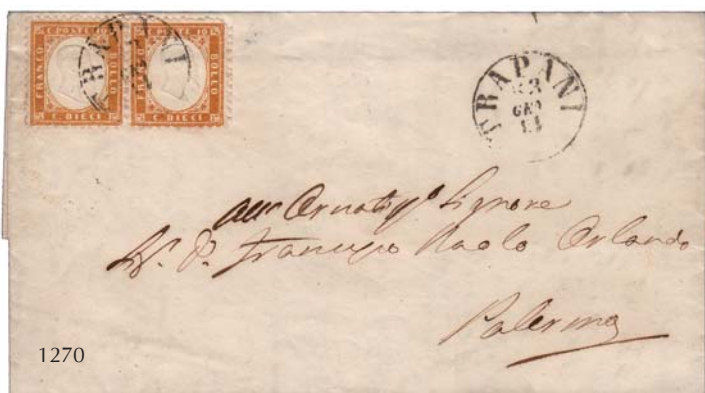 C. POSTE 10
FRANCO
BOLLO
C. DIECI
C. POSTE 10
FRANCO
BOLLO
C. DIECI
TRAPANI
TRAPANI
GEN
Signore
Francesco Paolo Orlando
Palermo
1270